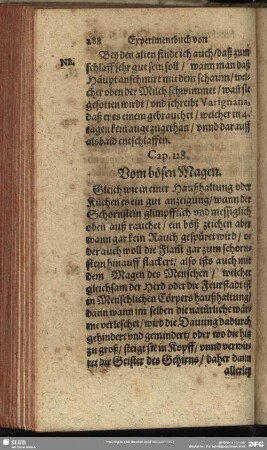 288 Experimentbuch von
NB.
Bey den alten finde ich auch/ daß zum
schlaff sehr gut sein soll / wann man das
Haupt anschmirt mit dem schaum/ wel-
cher oben der Milch schwimmet / wañ sie
gesotten wirdt / vnd schreibt Varignana,
daß er es einem gebrauchet / welcher in 4.
tagen kein auge zugethan / vnnd darauff
alsbald entschlaffen.
Cap. 128.
Vom bösen Magen.
Gleich wie in einer Haußhaltung oder
Küchen es ein gut anzeigung / wann der
Schornstein glimpfflich vnd messiglich
oben auß rauchet / ein böß zeichen aber
wann gar kein Rauch gespüret wird / o-
der auch woll die Flam̃ gar zum schorn-
stein hinauff flackert / also ists auch mit
dem Magen des Menschen / welcher
gleichsam der Herd oder die Feurstadt ist
in Menschlichen Cörpers haußhaltung/
dann wann im selben die natürliche wär-
me verleschet / wird die Dauung dadurch
gehindert vnd gemindert / oder wo die hitz
zu groß / steigt sie in Kopff / vnnd verwir-
ret die Geister des Gehirns / daher dann
allerley
SLUB
DFG